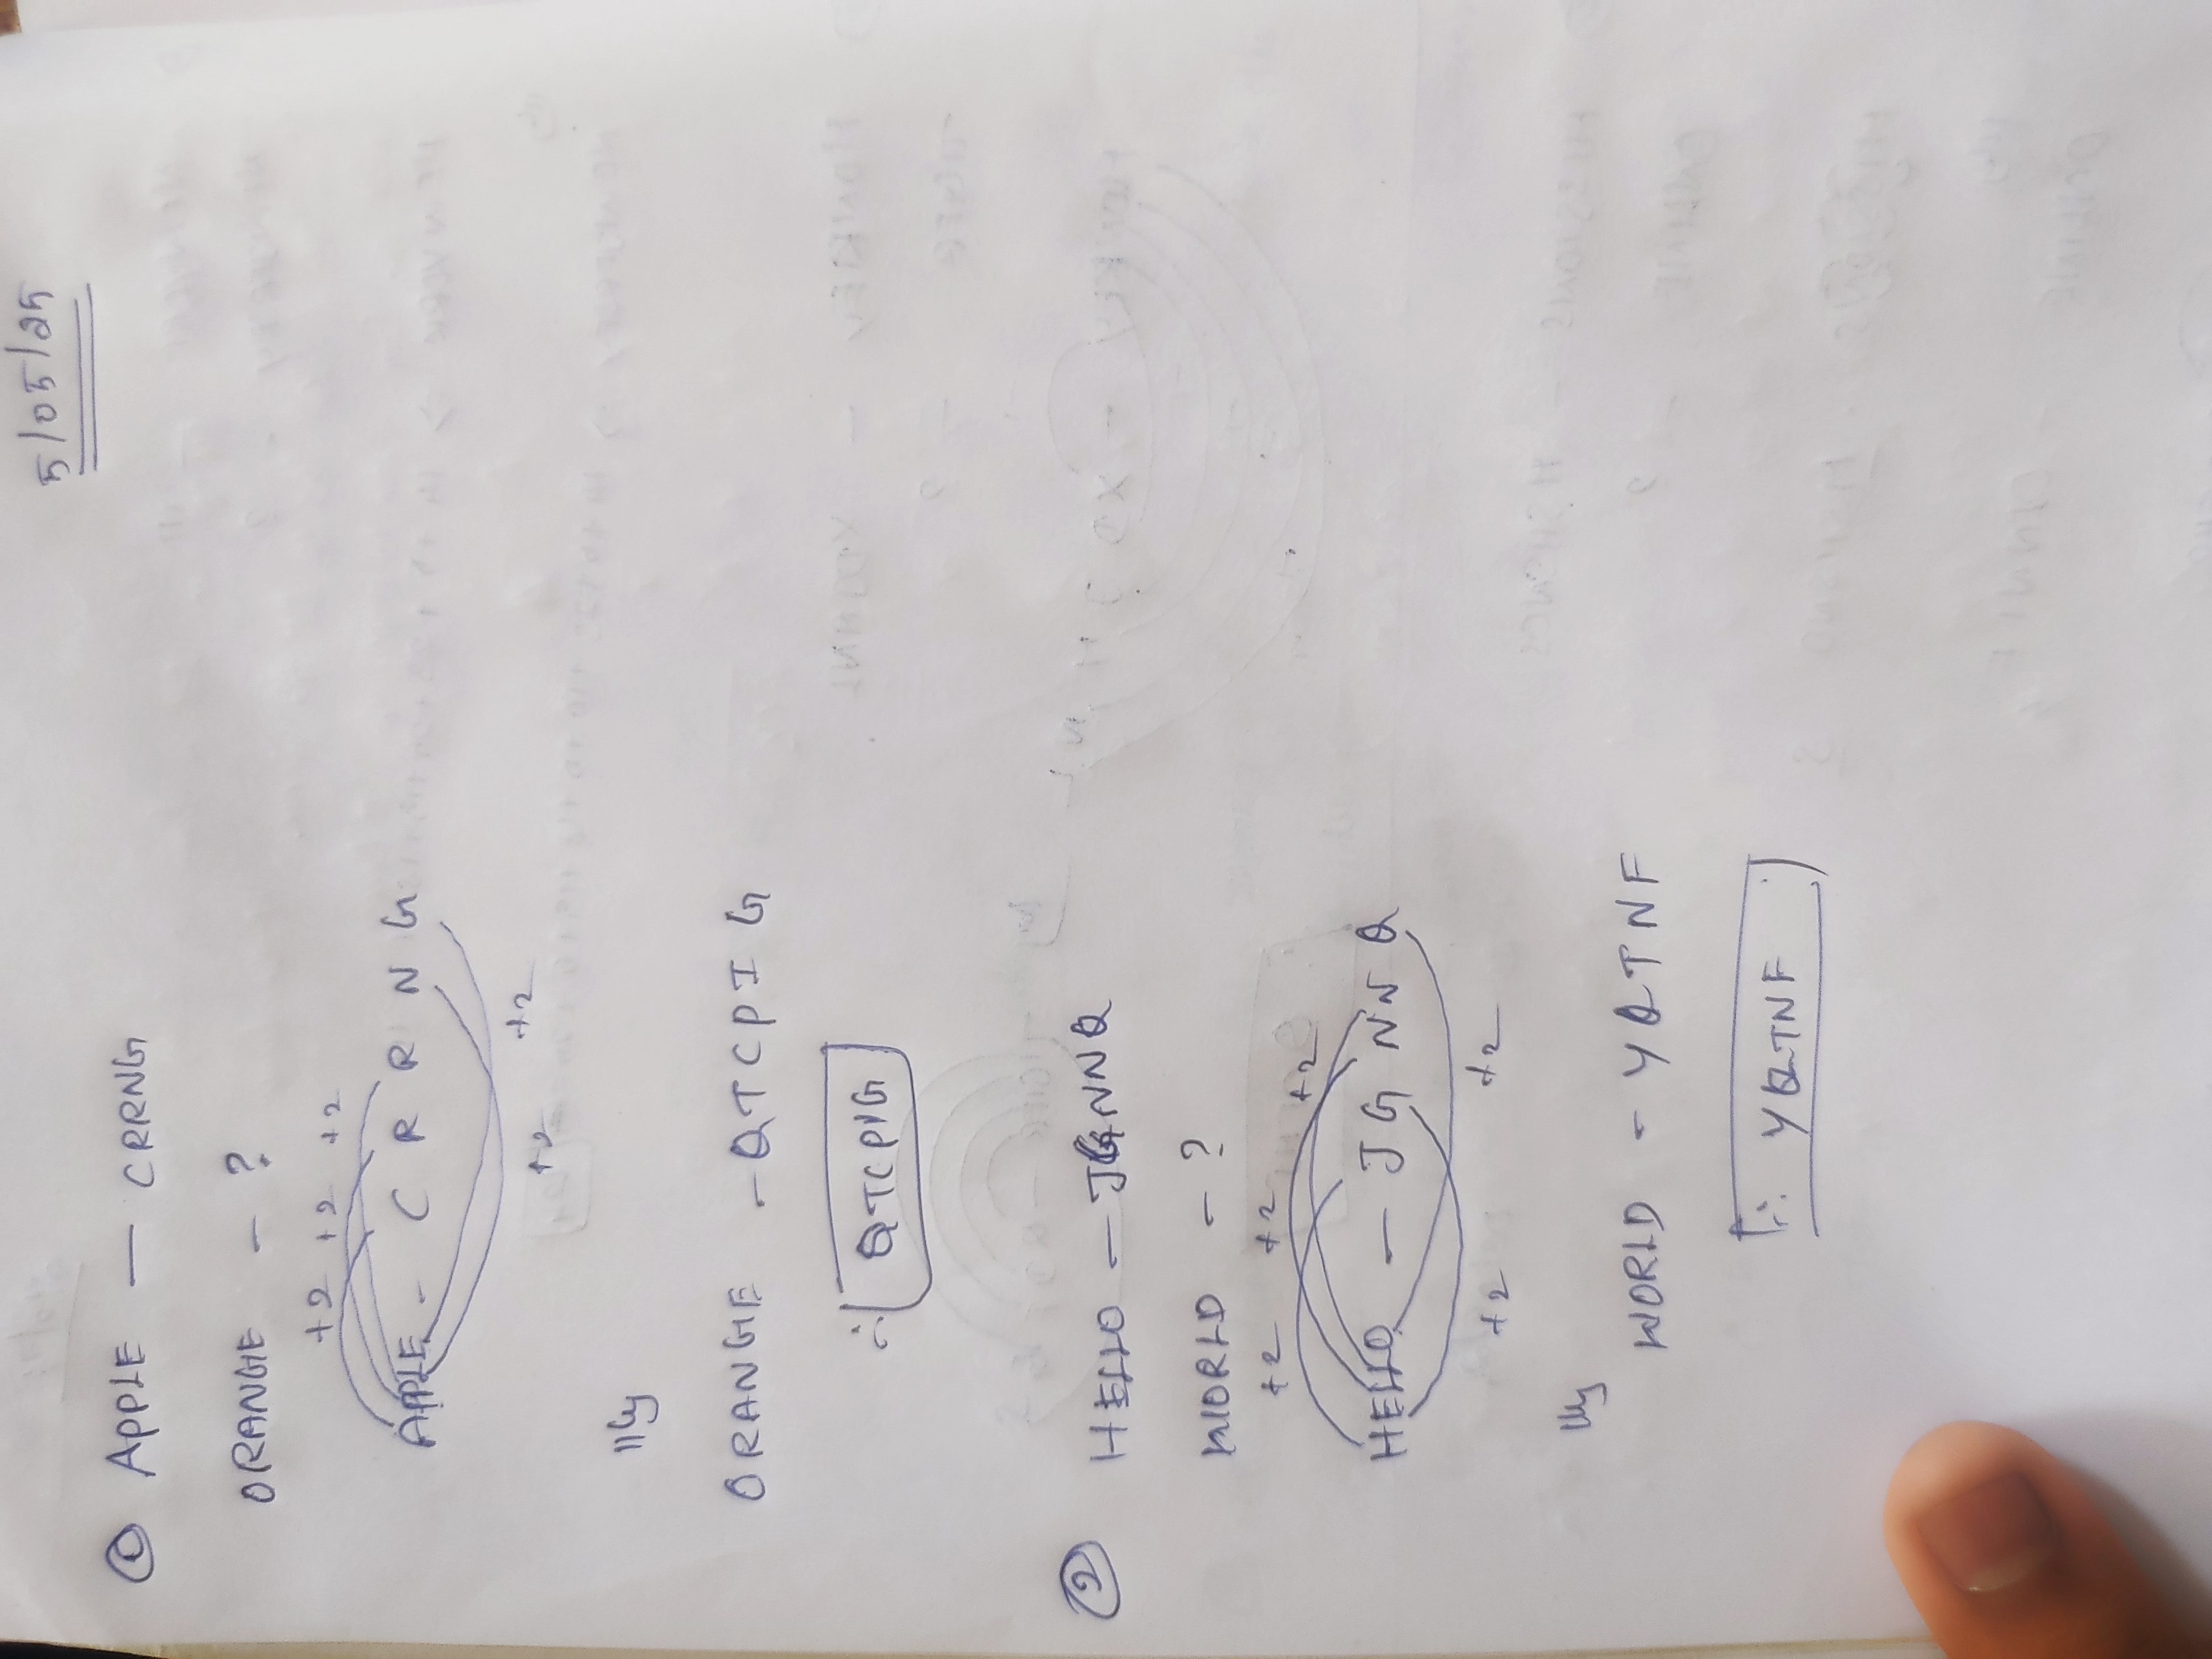 5/05/25
① APPLE — CRRNG
ORANGE - ?
+2 +2 +2
APPLE - C R R N G
+2 +2
llly
ORANGE - QTCPIG
∴ QTCPIG
② HELLO — JGNNQ
WORLD - ?
+2 +2 +2
HELLO — JGNNQ
+2 +2
llly
WORLD - YQTNF
∴ YQTNF